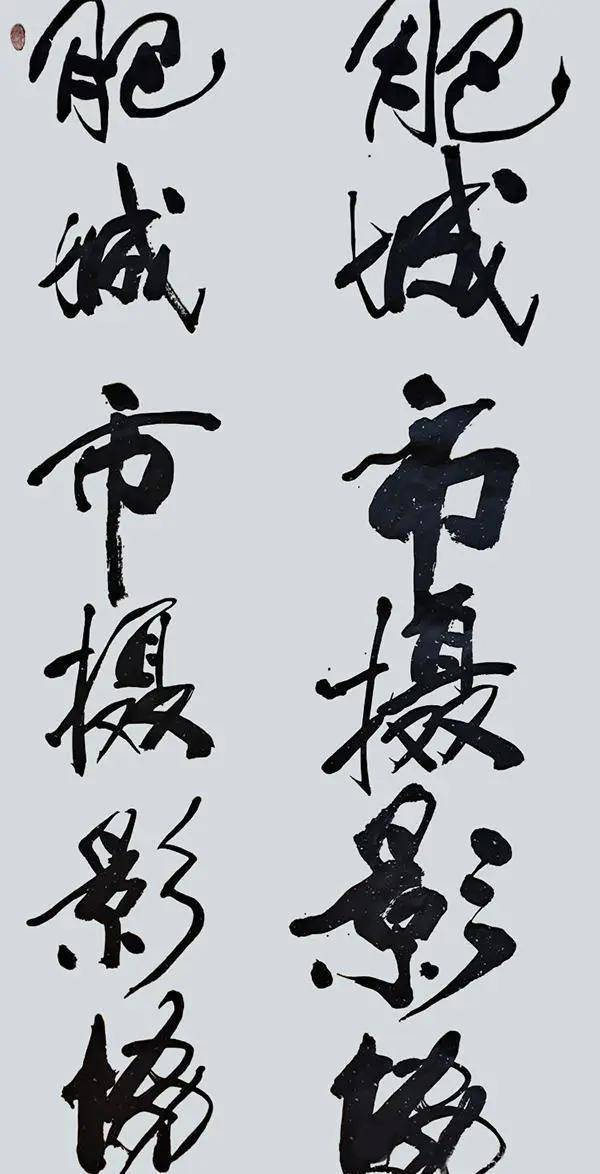 肥城市摄影协
肥城市摄影协